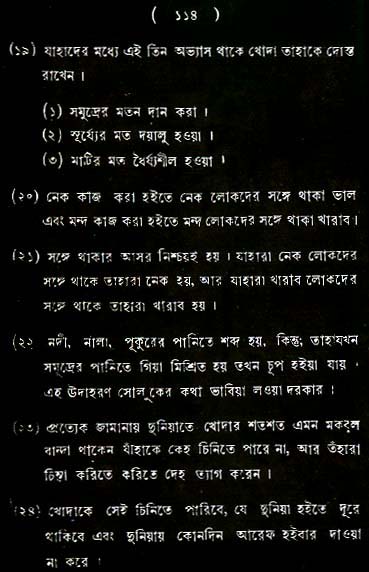 ( ১১৪ )
(১৯) যাহাদের মধ্যে এই তিন অভ্যাস থাকে খোদা তাহাকে দোস্ত
রাখেন ।
(১) সমুদ্রের মতন দান করা ।
(২) সূর্য্যের মত দয়ালু হওয়া ।
(৩) মাটির মত ধৈর্য্যশীল হওয়া ।
(২০) নেক কাজ করা হইতে নেক লোকদের সঙ্গে থাকা ভাল
এবং মন্দ কাজ করা হইতে মন্দ লোকদের সঙ্গে থাকা খারাব।
(২১) সঙ্গে থাকার আসর নিশ্চয়ই হয় । যাহারা নেক লোকদের
সঙ্গে থাকে তাহারা নেক হয়, আর যাহারা খারাব লোকদের
সঙ্গে থাকে তাহারা খারাব হয় ।
(২২ নদী, নালা, পুকুরের পানিতে শব্দ হয়, কিন্তু; তাহাযখন
সমুদ্রের পানিতে গিয়া মিশ্রিত হয় তখন চুপ হইয়া যায় ।
এই উদাহরণ সোলুকের কথা ভাবিয়া লওয়া দরকার ।
(২৩) প্রত্যেক জামানায় দুনিয়াতে খোদার শতশত এমন মকবুল
বান্দা থাকেন যাঁহাকে কেহ চিনিতে পারে না, আর তঁহারা
চিন্তা করিতে করিতে দেহ ত্যাগ করেন ।
(২৪) খোদাকে সেই চিনিতে পারিবে, যে দুনিয়া হইতে দূরে
থাকিবে এবং দুনিয়ায় কোনদিন আরেফ হইবার দাওয়া
না করে ।